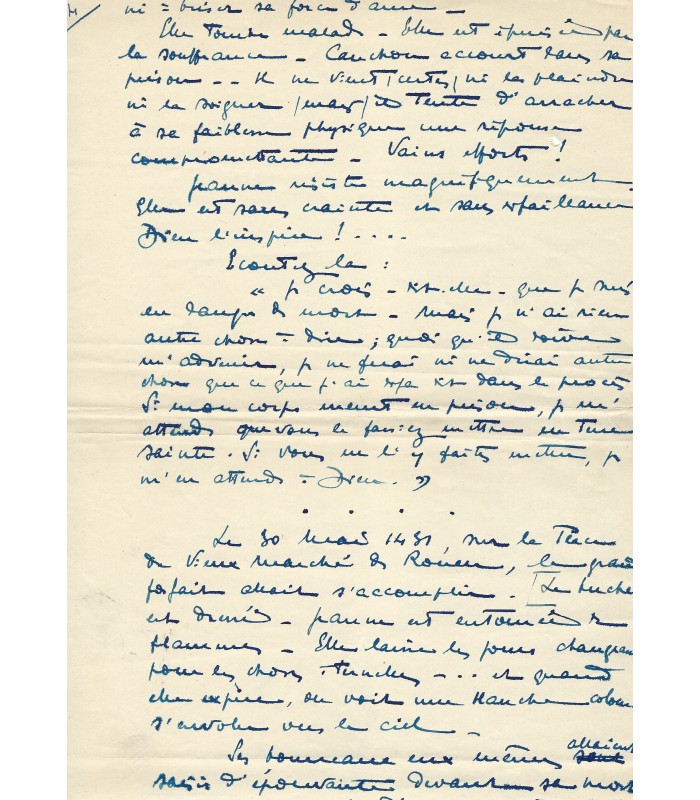 ni à briser sa force d'âme –
Elle tombe malade – Elle est épuisée par
la souffrance – Cauchon accourt dans sa
prison – – Il ne vient (certes) ni la plaindre
ni la soigner (mais) il tente d'arracher
à sa faiblesse physique une réponse
compromettante – Vains efforts !
Jeanne résiste magnifiquement
Elle est sans crainte et sans défaillance
Dieu l'inspire ! . . . .
Ecoutez la :
" Je crois – dit-elle – que je suis
en danger de mort – mais je n'ai rien
autre chose à dire ; quoi qu'il doive
m'advenir, je ne ferai ni ne dirai autre
chose que ce que j'ai déjà dit dans le procès
Si mon corps meurt en prison, je m'
attends que vous le fassiez mettre en terre
sainte. Si vous ne l'y faites mettre, je
m'en attends à Dieu. "
. . . .
Le 30 Mai 1431, sur la Place
du Vieux Marché de Rouen, le grand
forfait allait s'accomplir. [Le bucher
est dressé – Jeanne est entourée de
flammes – Elle laisse les jours changeants
pour les choses éternelles – . . . et quand
elle expire, on voit une blanche colombe
s'envoler vers le ciel –
Ses bourreaux eux mêmes allaient
saisis d'épouvante devant sa mort